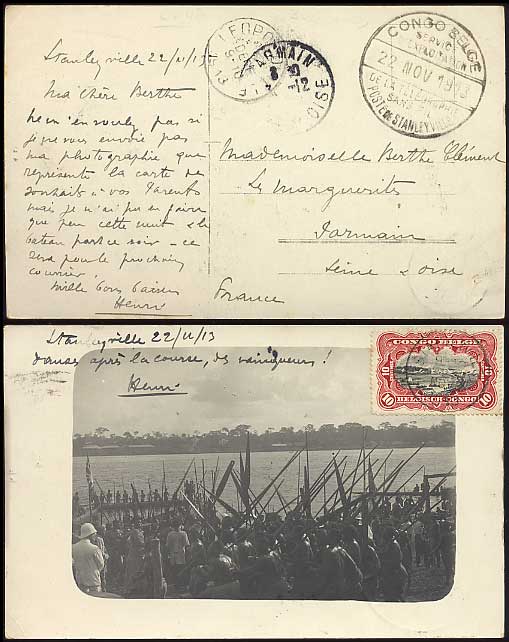 Stanleyville 22/11/13
Ma Chère Berthe
ne m'en veuillez pas si
je ne vous envoie pas
ma photographie que
représente la carte de
souhaits à vos Parents
mais je n'ai pu en faire
que peu cette nuit & le
bateau part ce soir - ce
sera pour le prochain
courrier.
Mille bons baisers
Henri
LEOPO
PARMAIN
OISE
CONGO BELGE
SERVICE
EXPLOITATION
22 NOV 1913
DE LA
SANS
POSTE DE STANLEYVILLE
Mademoiselle Berthe Clément
Les Marguerites
Parmain
Seine & Oise
France
Stanleyville 22/11/13
danses après la course, des vainqueurs !
Henri
CONGO BELGE
10 10
10 BELGISCH-CONGO 10